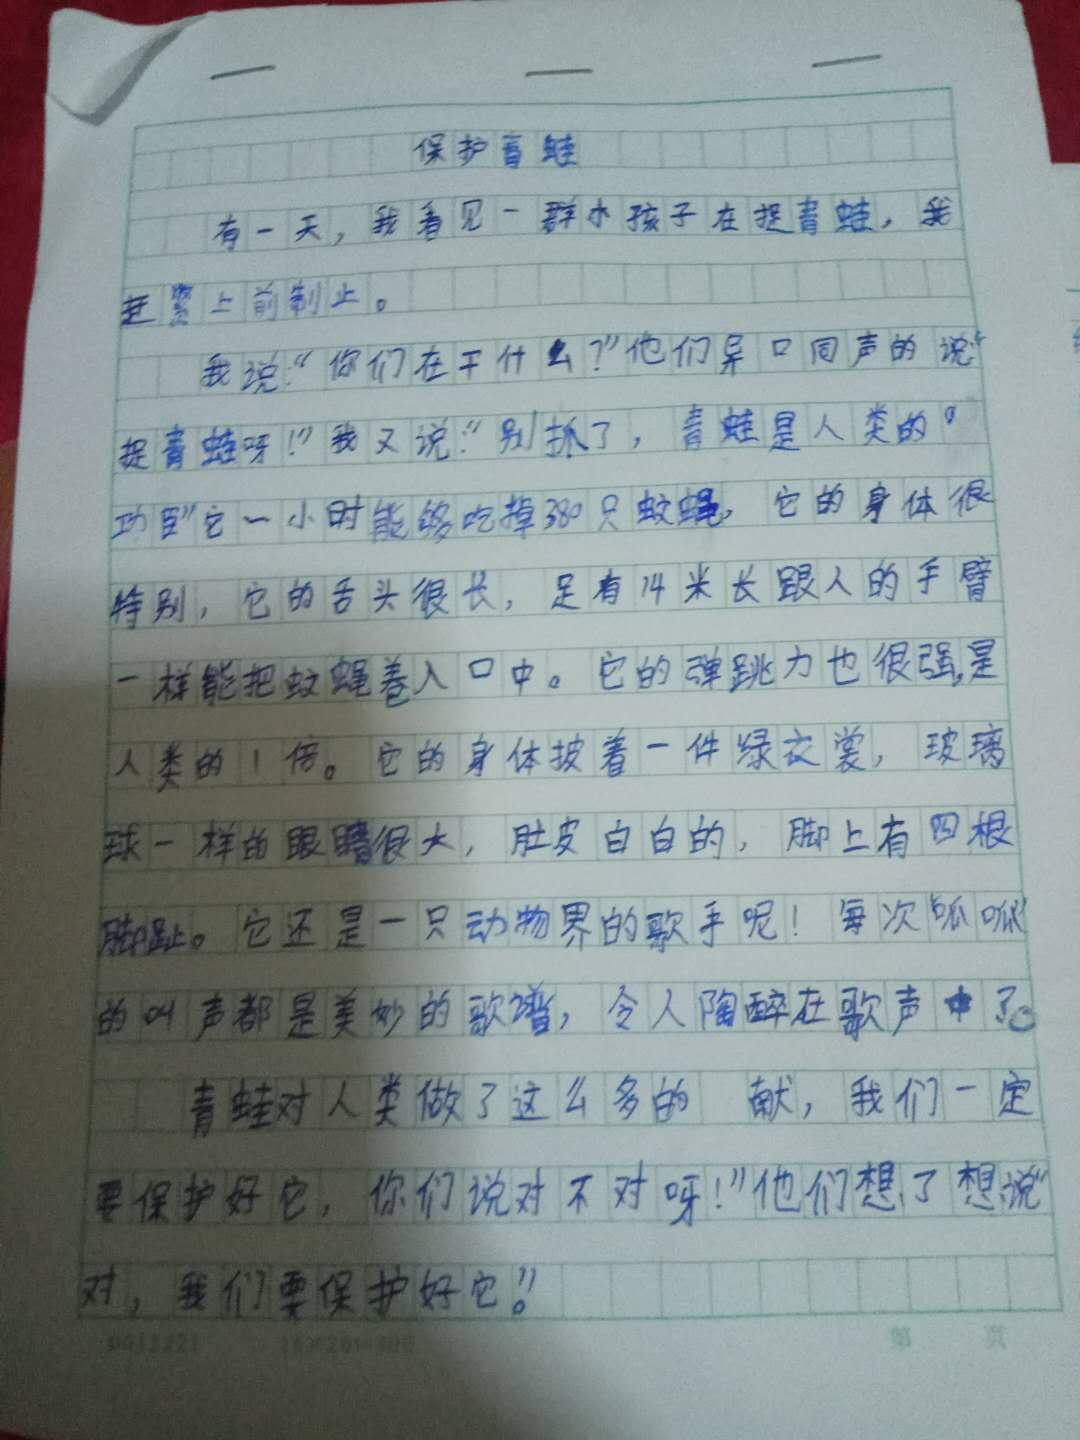 保护青蛙
有一天，我看见一群小孩子在捉青蛙，我
赶紧上前制止。
我说：“你们在干什么？”他们异口同声的说“
捉青蛙呀！”我又说：“别抓了，青蛙是人类的“
功臣”它一小时能够吃掉380只蚊蝇，它的身体很
特别，它的舌头很长，足有14米长跟人的手臂
一样能把蚊蝇卷入口中。它的弹跳力也很强，是
人类的1倍。它的身体披着一件绿衣裳，玻璃
球一样的眼睛很大，肚皮白白的，脚上有四根
脚趾。它还是一只动物界的歌手呢！每次“呱呱”
的叫声都是美妙的歌谱，令人陶醉在歌声中了。
青蛙对人类做了这么多的 献，我们一定
要保护好它，你们说对不对呀！”他们想了想说“
对，我们要保护好它！”
第 页